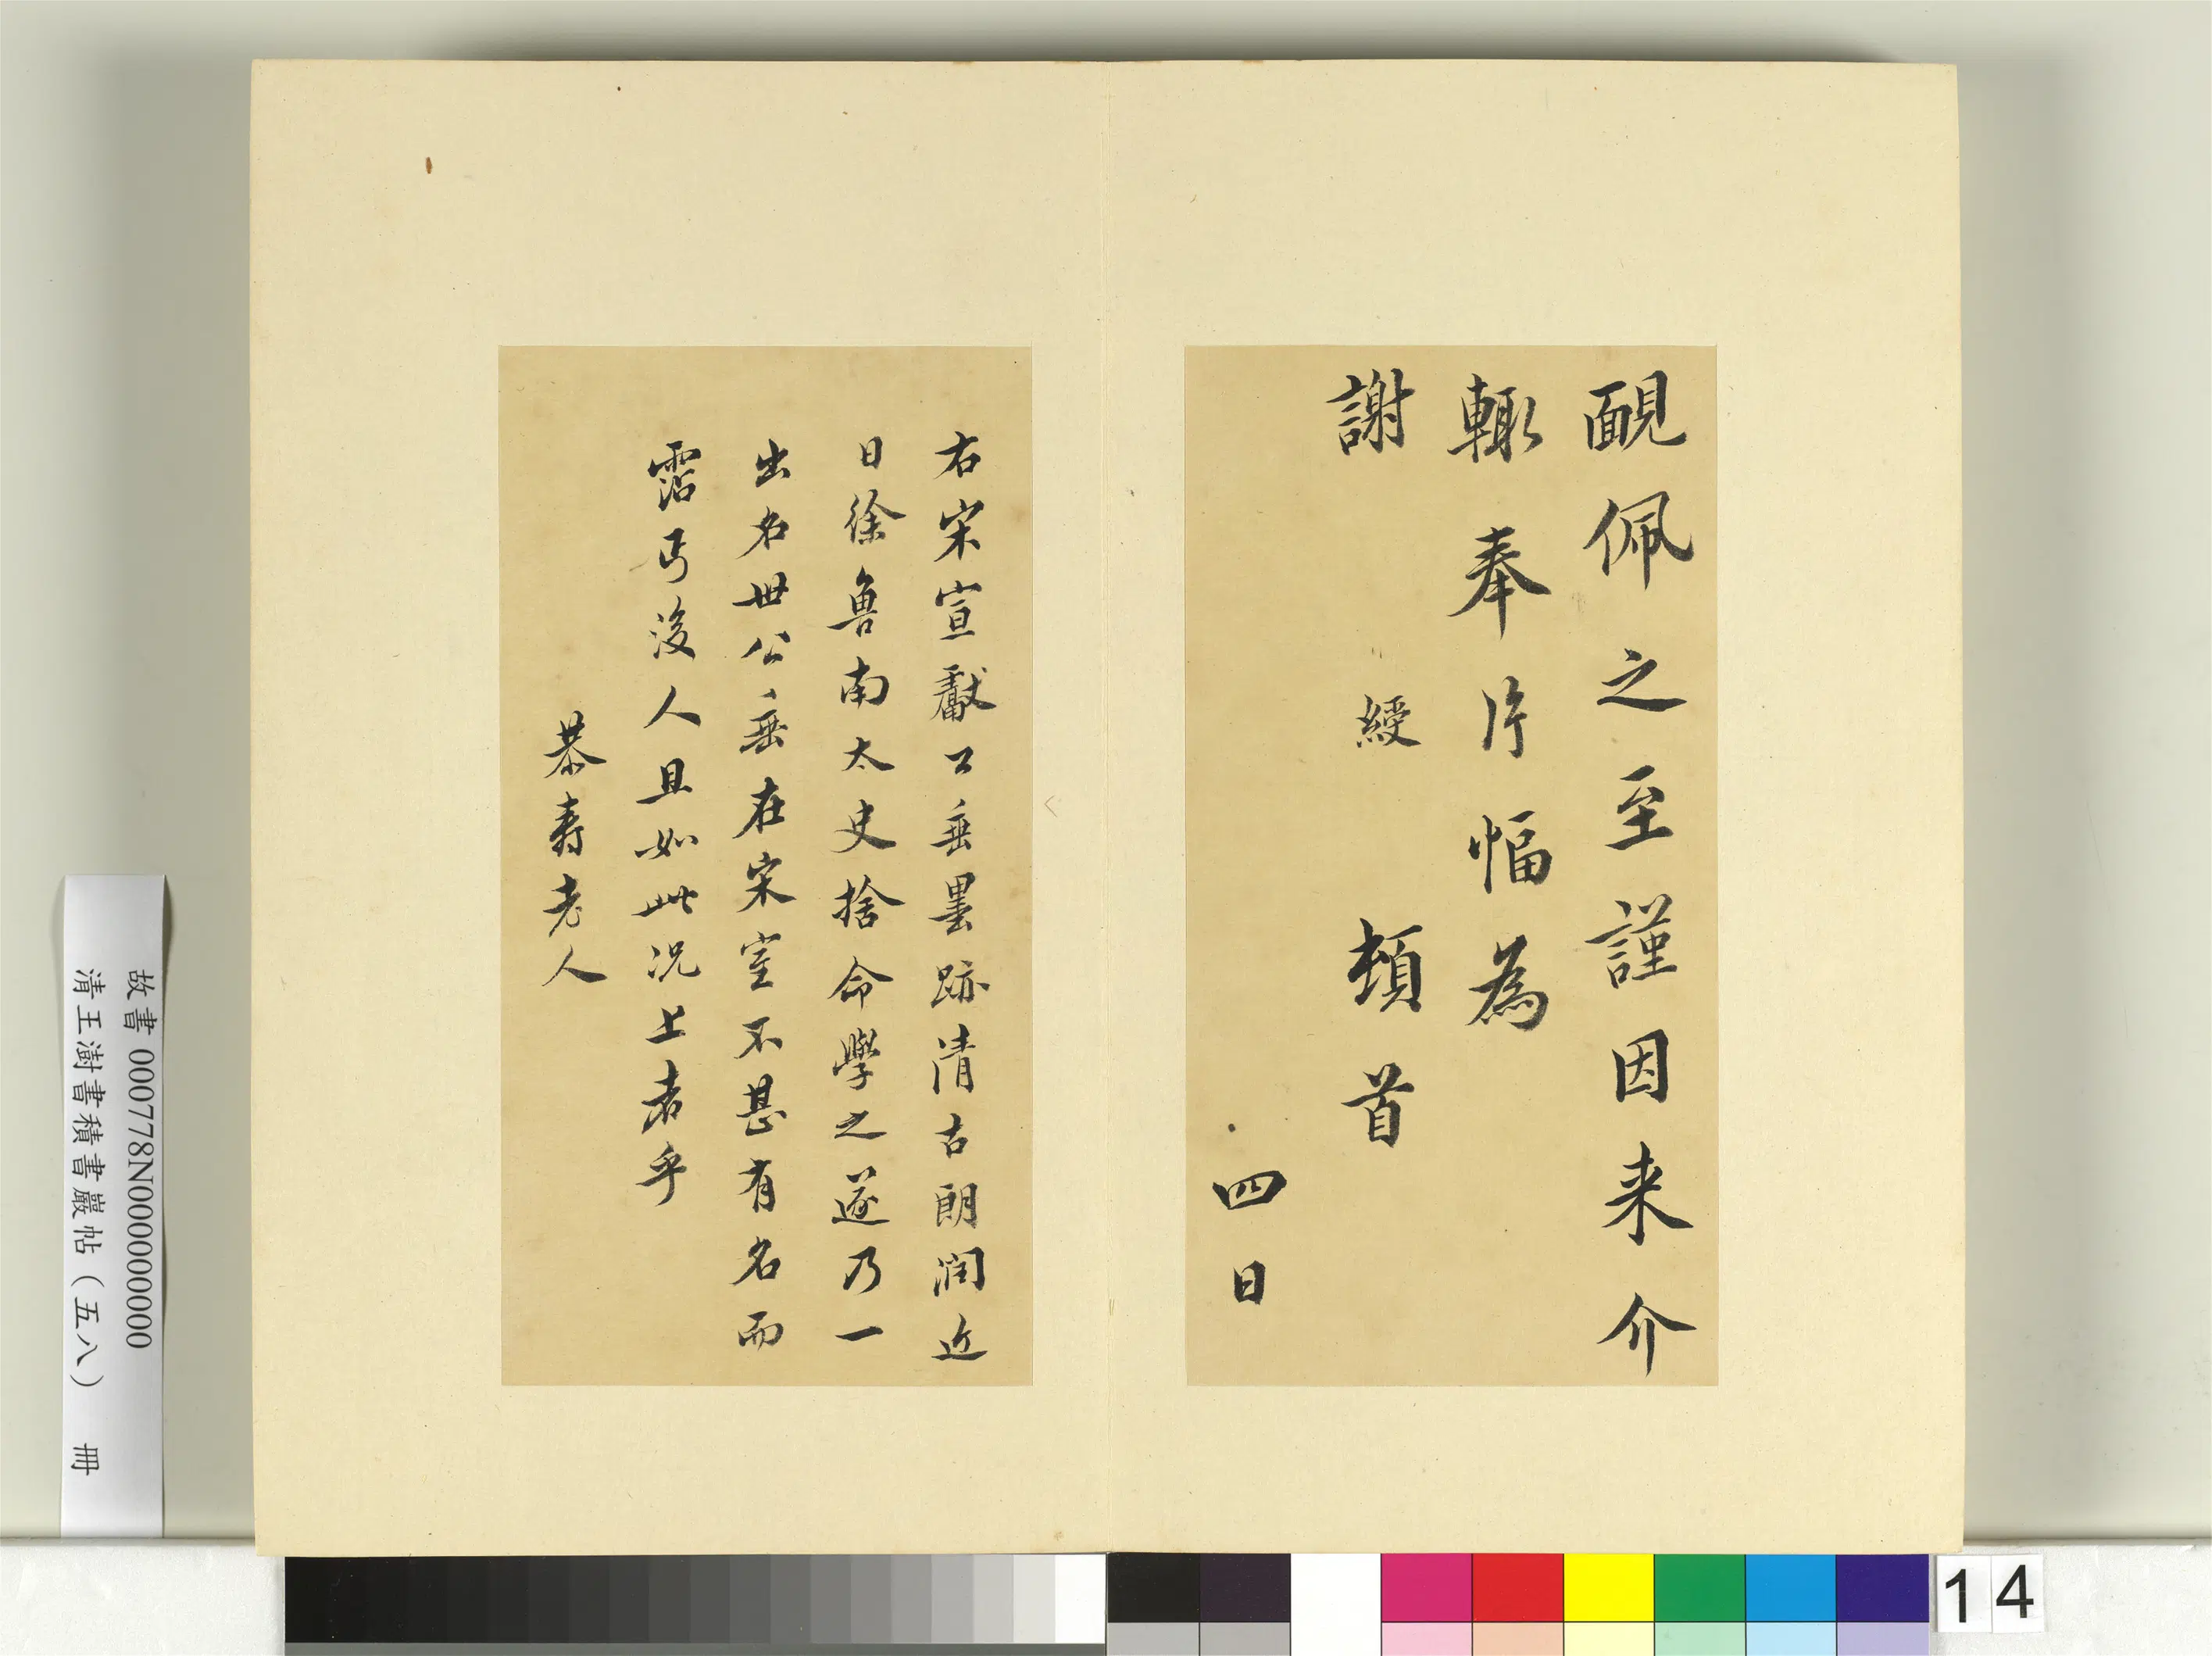 靦佩之至謹因来介
輙奉片幅為
謝 綬 頓首
四日
右宋宣獻公垂墨跡清古朗潤近
日徐魯南太史捨命學之遂乃一
出名世公垂在宋室不甚有名而
霑丐後人且如此况上者乎
恭壽老人
故書 000778N000000000
清王澍書積書巖帖（五八） 冊
14